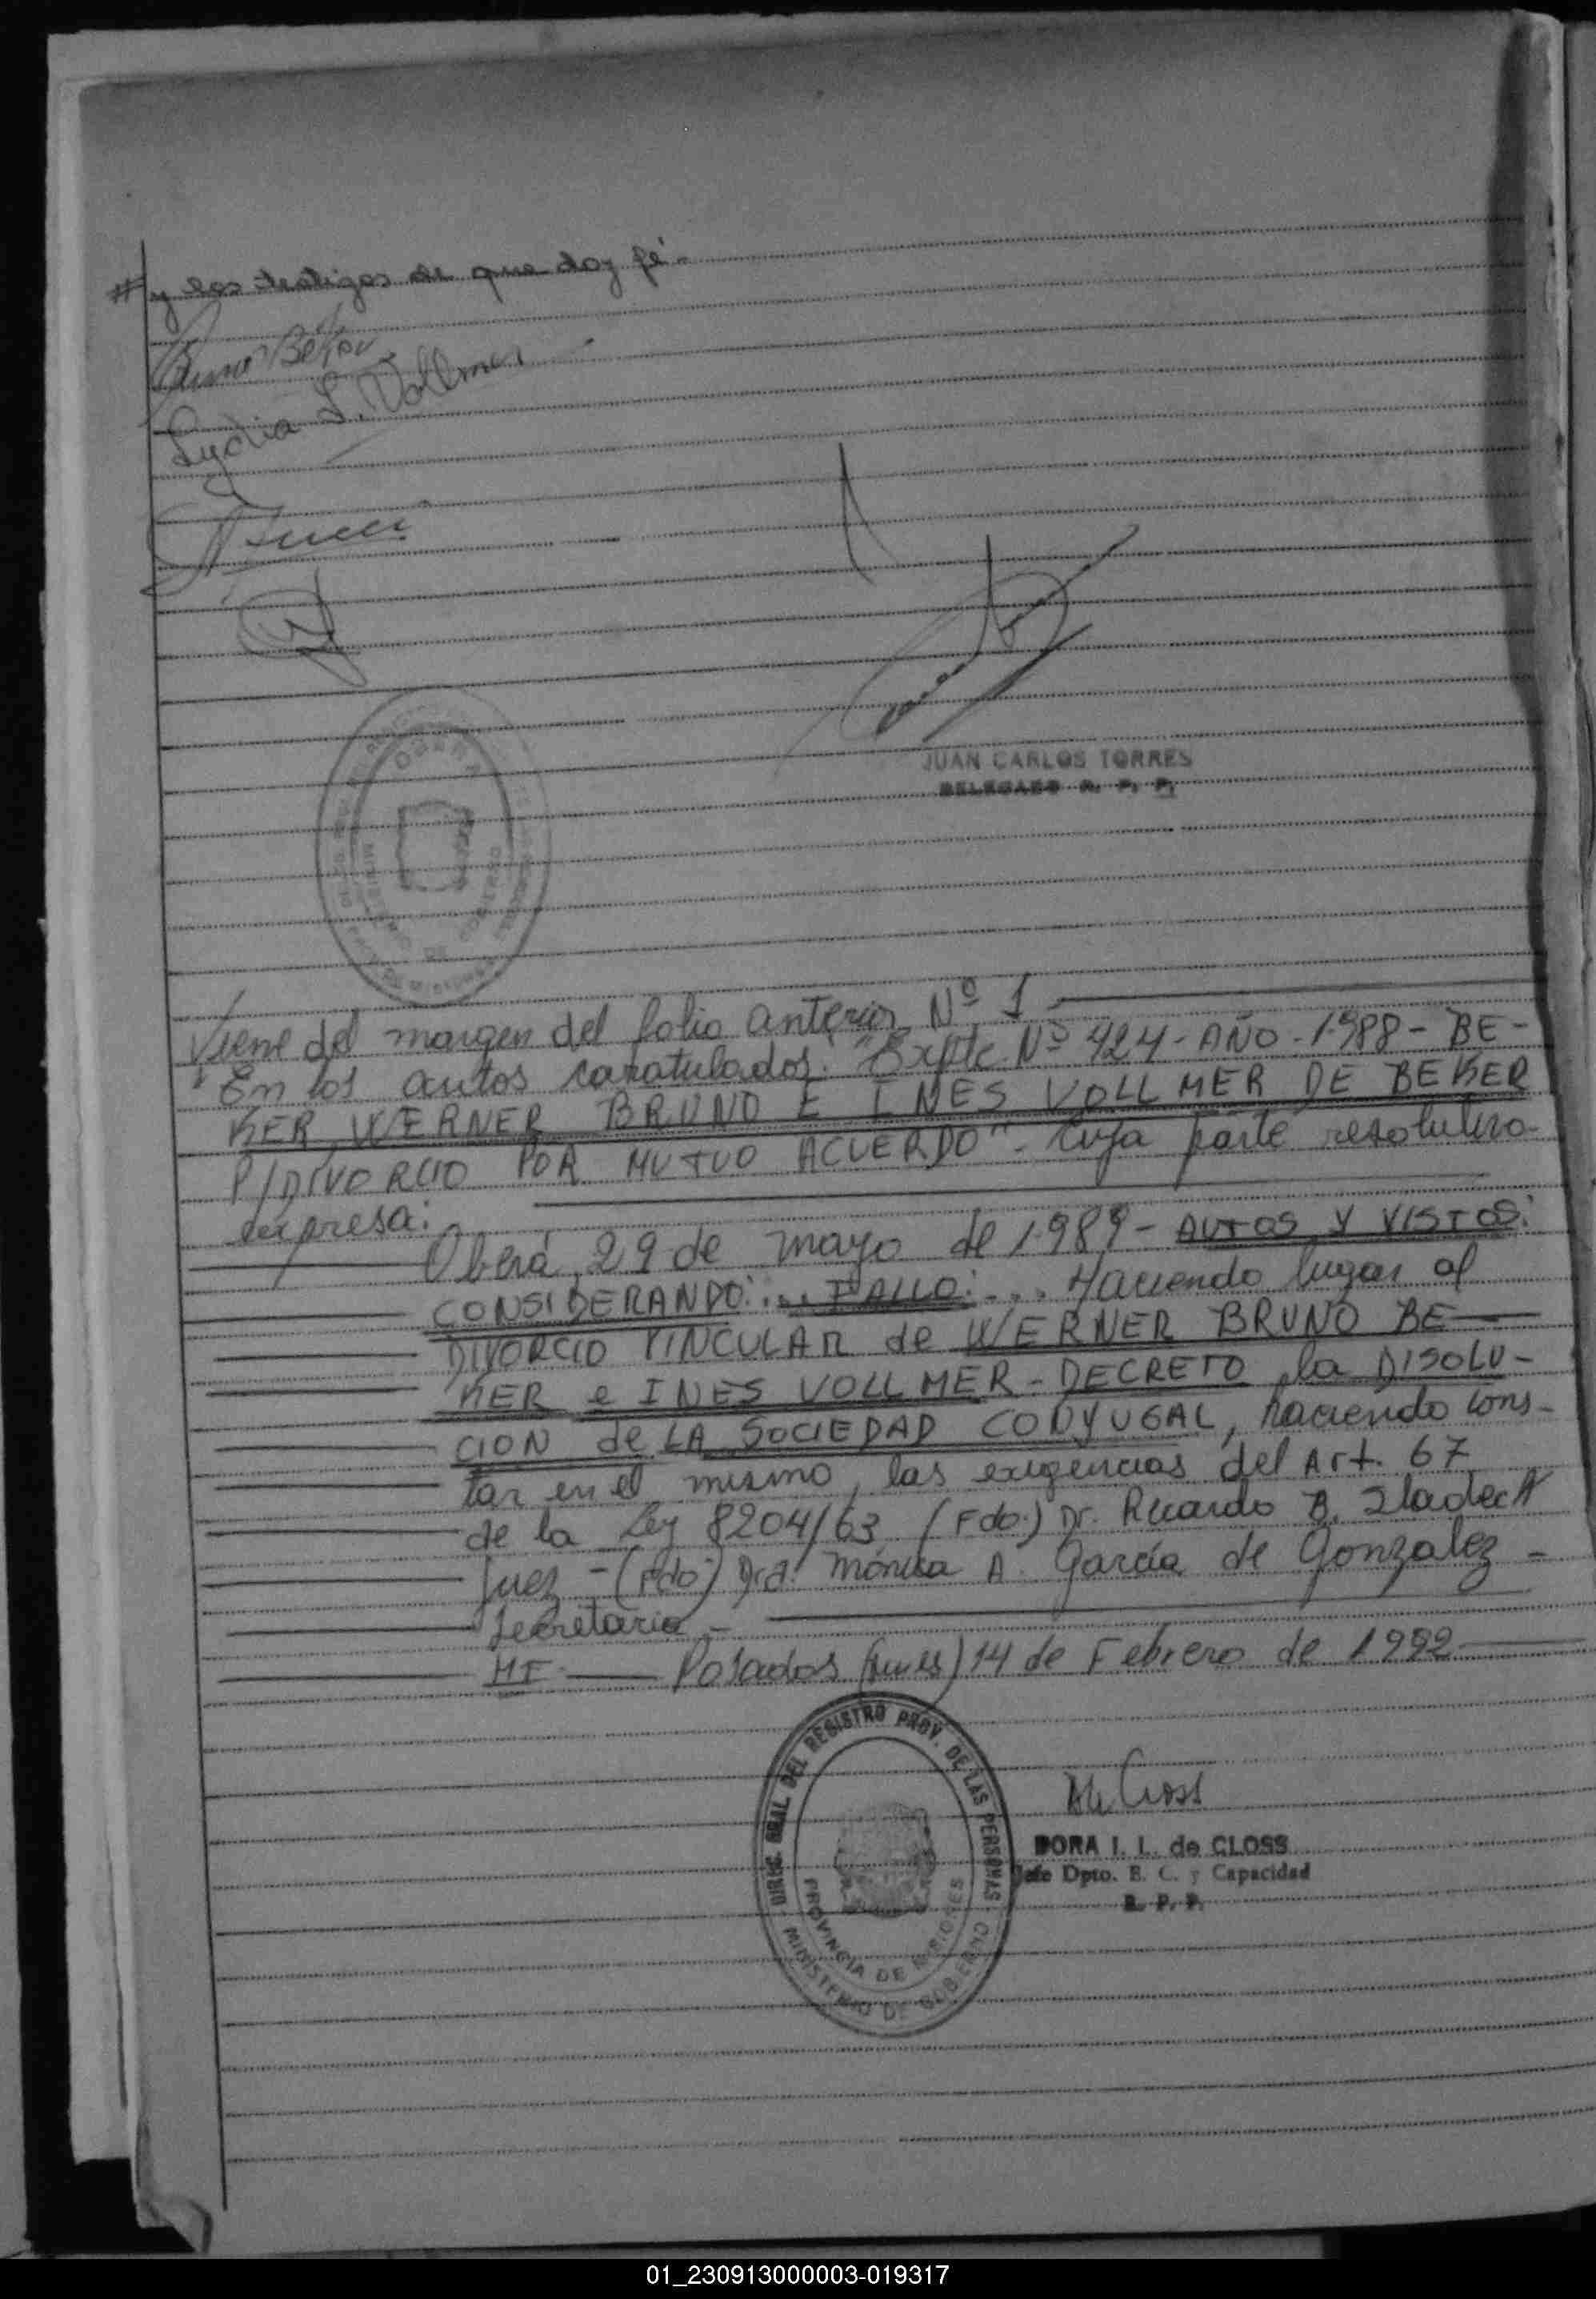 # y los testigos de que doy fé.-
Bruno Beker
Lydia L. Vollmer
JUAN CARLOS TORRES
DELEGADO R. P. P.
OBERA
MINISTERIO DE GOBIERNO
Viene del margen del folio anterior Nº 1
"En los autos caratulados: "Expte. Nº 424 - AÑO - 1988 - BE-
KER, WERNER BRUNO E INES VOLLMER DE BEKER
P/DIVORCIO POR MUTUO ACUERDO" - Cuya parte resolutiva
expresa:
Oberá, 29 de mayo de 1989 - AUTOS Y VISTOS:
CONSIDERANDO: ... FALLO: ... Haciendo lugar al
DIVORCIO VINCULAR de WERNER BRUNO BE-
KER e INES VOLLMER - DECRETO la DISOLU-
CION de LA SOCIEDAD CONYUGAL, haciendo cons-
tar en el mismo, las exigencias del Art. 67
de la Ley 8204/63 (Fdo.) Dr. Ricardo B.
Juez - (Fdo) Dra. Mónica A. García de Gonzalez -
Secretaria -
MF Posadas (Mnes) 14 de Febrero de 1992
DIREC. GRAL DEL REGISTRO PROV. DE LAS PERSONAS
PROVINCIA DE MISIONES
MINISTERIO DE GOBIERNO
de Closs
DORA I. L. de CLOSS
Jefe Dpto. E. C. y Capacidad
R. P. P.
01_230913000003-019317